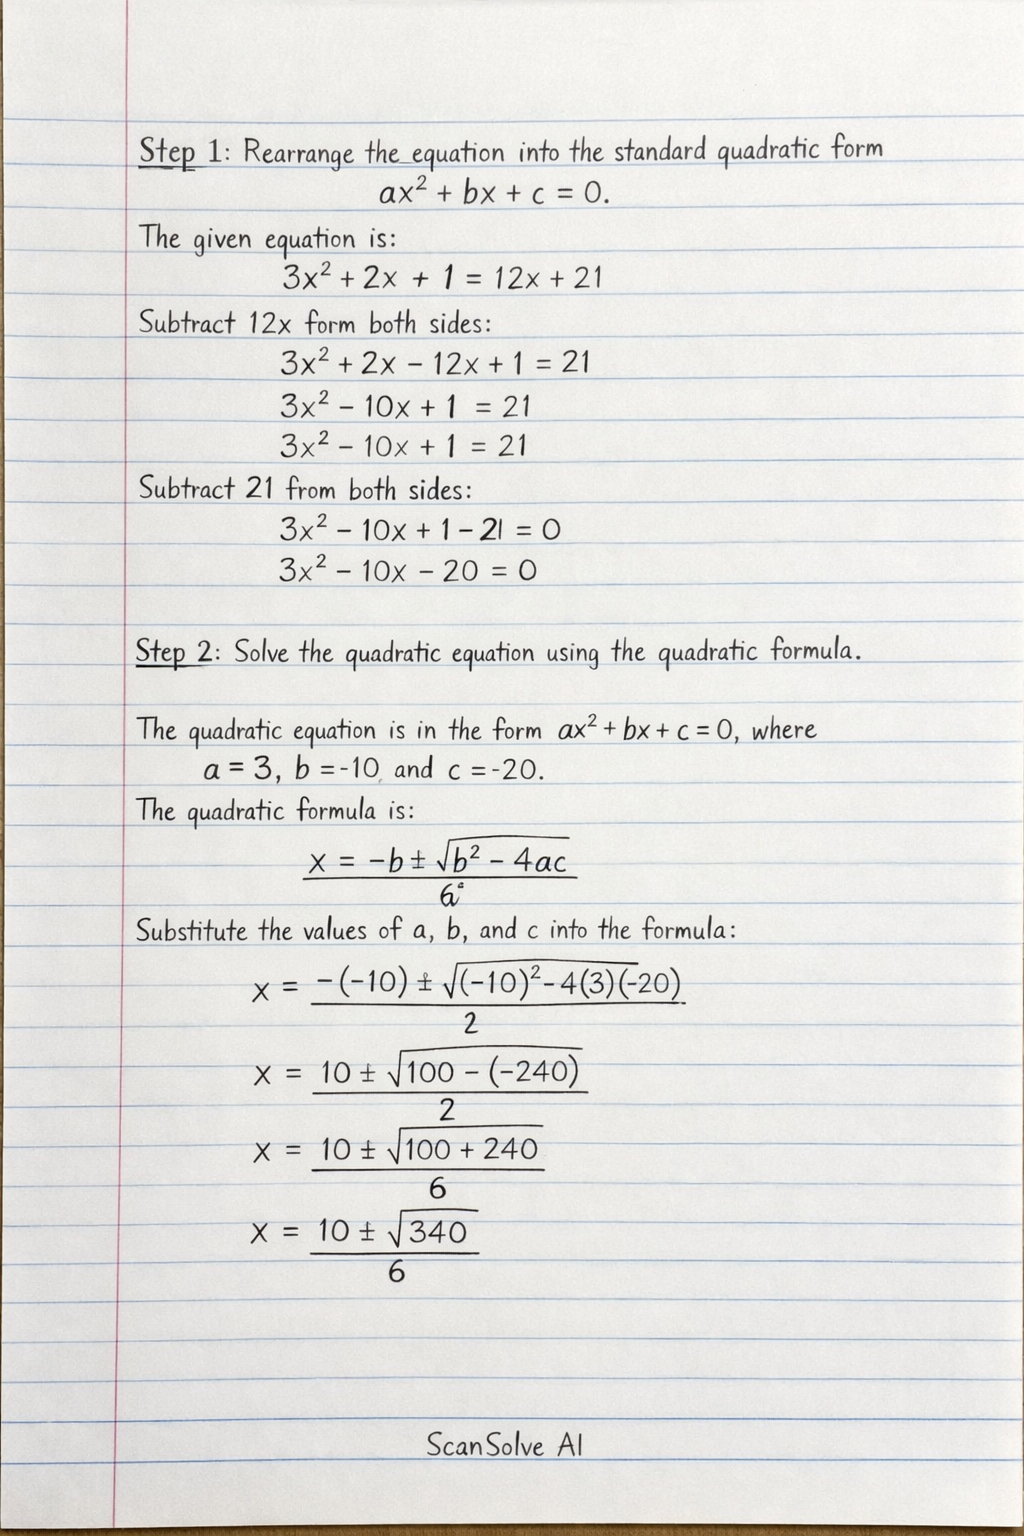 Step 1: Rearrange the equation into the standard quadratic form
ax² + bx + c = 0.
The given equation is:
3x² + 2x + 1 = 12x + 21
Subtract 12x form both sides:
3x² + 2x − 12x + 1 = 21
3x² − 10x + 1 = 21
3x² − 10x + 1 = 21
Subtract 21 from both sides:
3x² − 10x + 1 − 21 = 0
3x² − 10x − 20 = 0
Step 2: Solve the quadratic equation using the quadratic formula.
The quadratic equation is in the form ax² + bx + c = 0, where
a = 3, b = -10 and c = -20.
The quadratic formula is:
x = −b ± √b² − 4ac
6
Substitute the values of a, b, and c into the formula:
x = −(−10) ± √(−10)² − 4(3)(−20)
2
x = 10 ± √100 − (−240)
2
x = 10 ± √100 + 240
6
x = 10 ± √340
6
ScanSolve AI